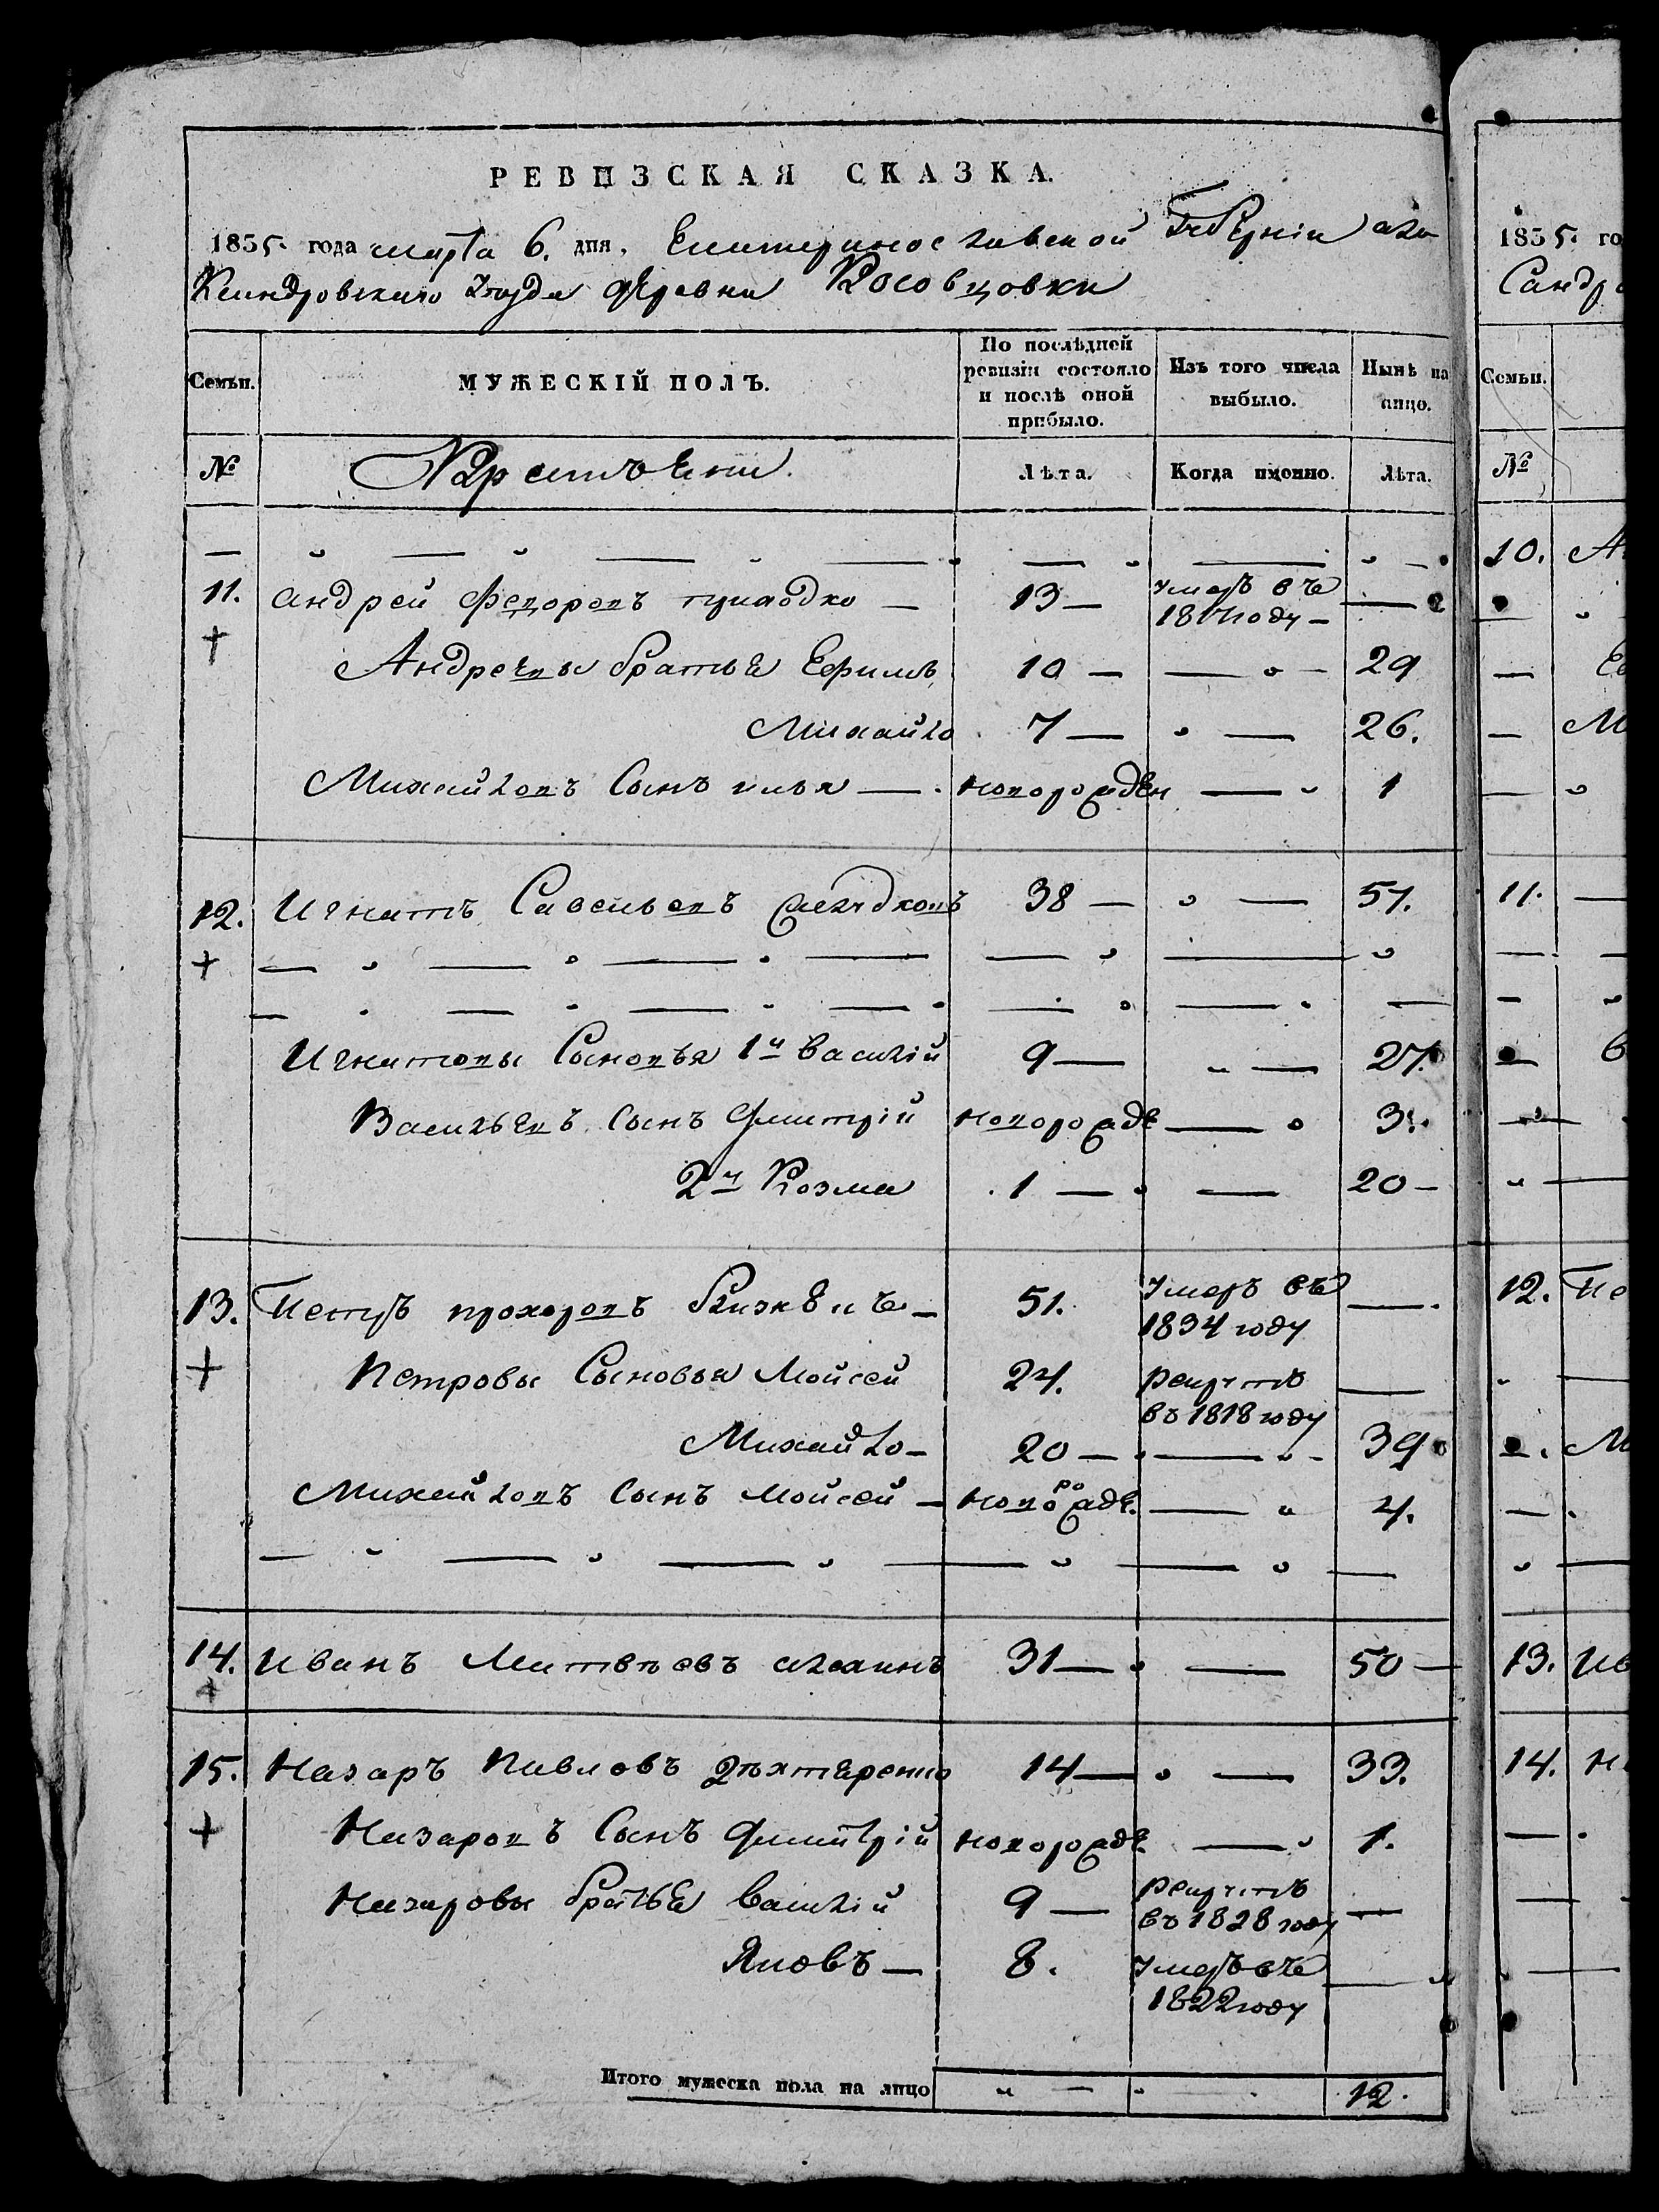 РЕВИЗСКАЯ СКАЗКА.
1835 года марта 6. дня. Екатеринославской Губерніи але
ксандровскаго уезда деревни Косовцовки
Семьи. МУЖЕСКІЙ ПОЛЪ. По послѣдней ревизіи состояло и послѣ оной прибыло. Изъ того числа выбыло. Нынѣ на лицо.
№ Крестьяни. Лѣта. Когда именно. Лѣта.
11. Андрей Федоровъ 13 — умеръ въ —
году —
Андреевы братья Ефимъ 10 — — 29
Михайло 7 — — 26.
Михайловъ Сынъ илья — новорожден — 1
12. Игнатъ Савельевъ 38 — — 57.
Игнатовы Сыновья 1й Василій 9 — — 27.
Васильевъ Сынъ Дмитрій новорожде — 3.
2й Козма 1 — — 20 —
13. Петръ прохоровъ 51. умеръ въ —
1834 году
Петровы Сыновья Мойсей 24. рекрутъ —
въ 1818 году
Михайло — 20 — — 39
Михайловъ Сынъ Мойсей — новорожде. — 4.
14. Иванъ Матвѣевъ 31 — — 50 —
15. Назаръ Павловъ 14 — — 33.
Назаровъ Сынъ Дмитрій новорожде. — 1.
Назаровы братья Василій 9 — рекрутъ —
въ 1828 году
Яковъ — 8. умеръ въ —
1822 году
Итого мужеска пола на лицо 12.
1835 го
Сандро
Семьи.
№
10.
11.
12. Пе
13. Ив
14.